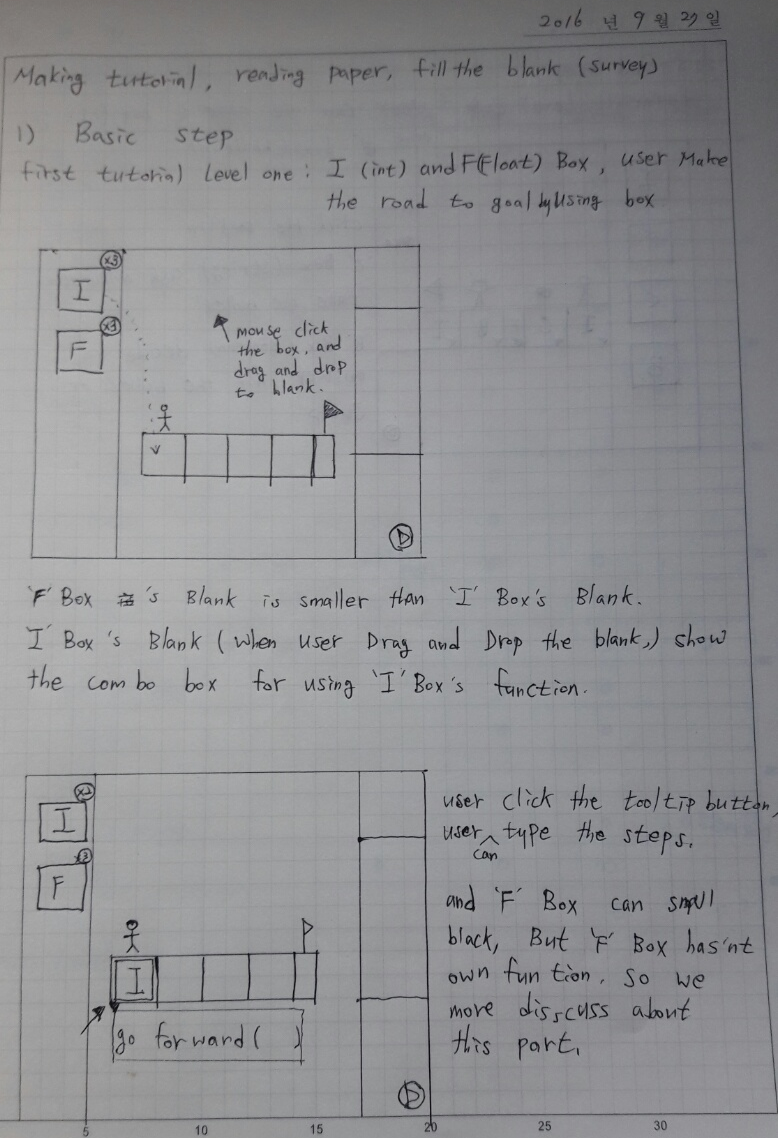 2016 년 9 월 27 일
Making tutorial, reading paper, fill the blank (survey)
1) Basic step
first tutorial level one : I (int) and F(Float) Box, user Make
the road to goal by Using box
x3
I
x3
F
mouse click
the box, and
drag and drop
to blank.
'F' Box 's Blank is smaller than 'I' Box's Blank.
'I' Box's Blank (when user Drag and Drop the blank,) show
the combo box for using 'I' Box's function.
x2
I
x3
F
I
go forward( )
user click the tooltip button,
user can type the steps.
and 'F' Box can small
black, But 'F' Box has'nt
own fun tion. so we
more disscuss about
this part.
5 10 15 20 25 30